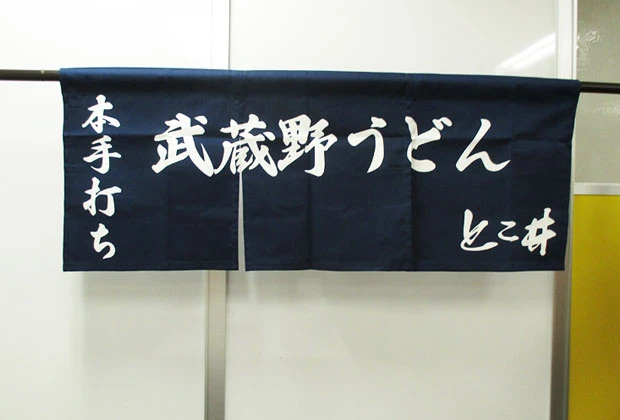 本手打ち
武蔵野うどん
とこ井